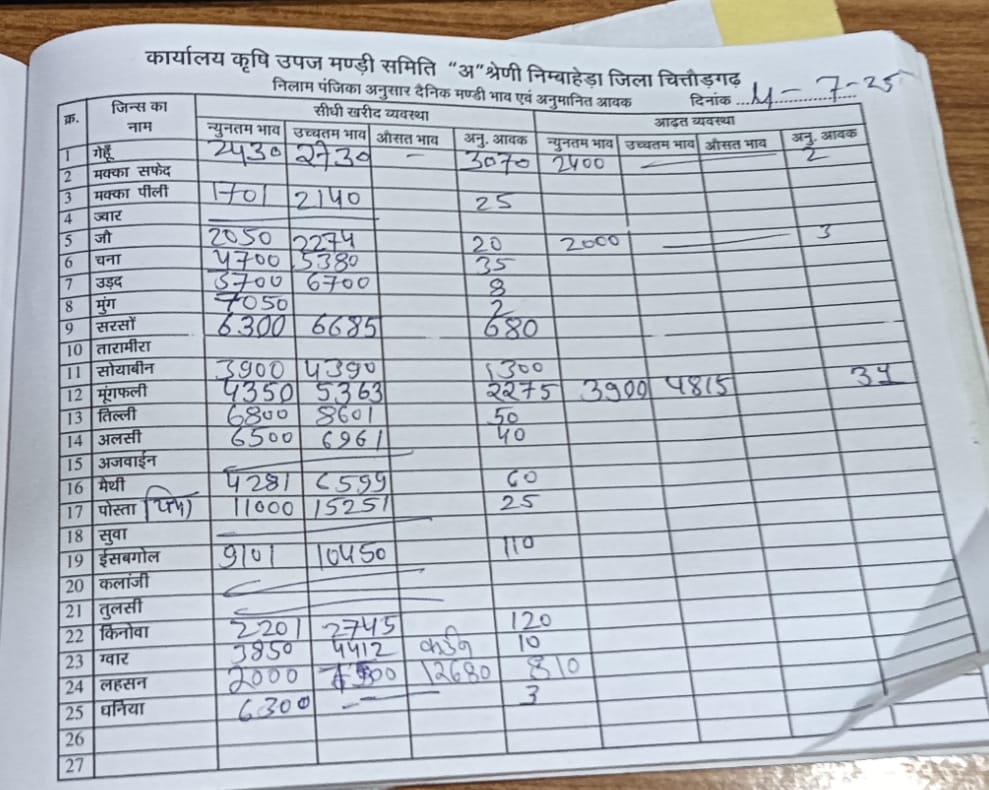 कार्यालय कृषि उपज मण्ड़ी समिति "अ" श्रेणी निम्बाहेड़ा जिला चित्तौड़गढ़
निलाम पंजिका अनुसार दैनिक मण्डी भाव एवं अनुमानित आवक दिनांक ... - 7-25
क्र. जिन्स का नाम सीधी खरीद व्यवस्था आढ़त व्यवस्था
न्युनतम भाव उच्चतम भाव औसत भाव अनु. आवक न्युनतम भाव उच्चतम भाव औसत भाव अनु. आवक
1 गेहूँ 2430 2730 - 3070 2400 — 2
2 मक्का सफेद
3 मक्का पीली 1701 2140 25
4 ज्वार —
5 जौ 2050 2274 20 2000 — 3
6 चना 4700 5380 35
7 उड़द 5700 6700 8
8 मुंग 7050 2
9 सरसों 6300 6685 680
10 तारामीरा
11 सोयाबीन 3900 4390 1300
12 मूंगफली 4350 5363 2275 3900 4815
13 तिल्ली 6800 8601 50
14 अलसी 6500 6961 40
15 अजवाईन —
16 मैथी 4281 6599 60
17 पोस्ता 11000 15251 25
18 सुवा —
19 ईसबगोल 9101 10450 110
20 कलांजी —
21 तुलसी —
22 किनोवा 2201 2745 120
23 ग्वार 3850 4412 10
24 लहसन 2000 12680 810
25 धनिया 6300 — 3
26
27